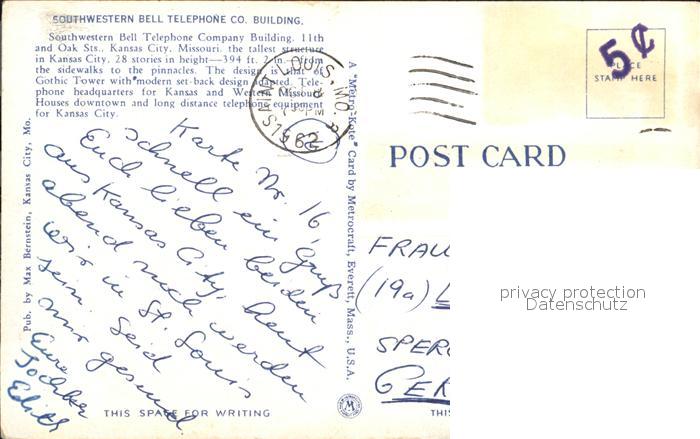 SOUTHWESTERN BELL TELEPHONE CO. BUILDING.
Southwestern Bell Telephone Company Building. 11th
and Oak Sts., Kansas City, Missouri. the tallest structure
in Kansas City. 28 stories in height—394 ft. 2 in. from
the sidewalks to the pinnacles. The design is that of
Gothic Tower with modern set-back design adapted. Tele-
phone headquarters for Kansas and Western Missouri.
Houses downtown and long distance telephone equipment
for Kansas City.
Pub. by Max Bernstein, Kansas City, Mo.
SAINT LOUIS, MO.
PM
1962
Karte Nr. 16,
schnell ein Gruß
Euch lieben beiden
aus Kansas City, heut
abend noch werden
wir in St. Louis
sein. Seid
nur gesund
Eure
Tochter
Edith
THIS SPACE FOR WRITING
A "Metro-Kote" Card by Metrocraft, Everett, Mass., U.S.A.
M
5¢
PLACE
STAMP HERE
POST CARD
FRAU
(19a) L
SPER
GER
THI
privacy protection
Datenschutz